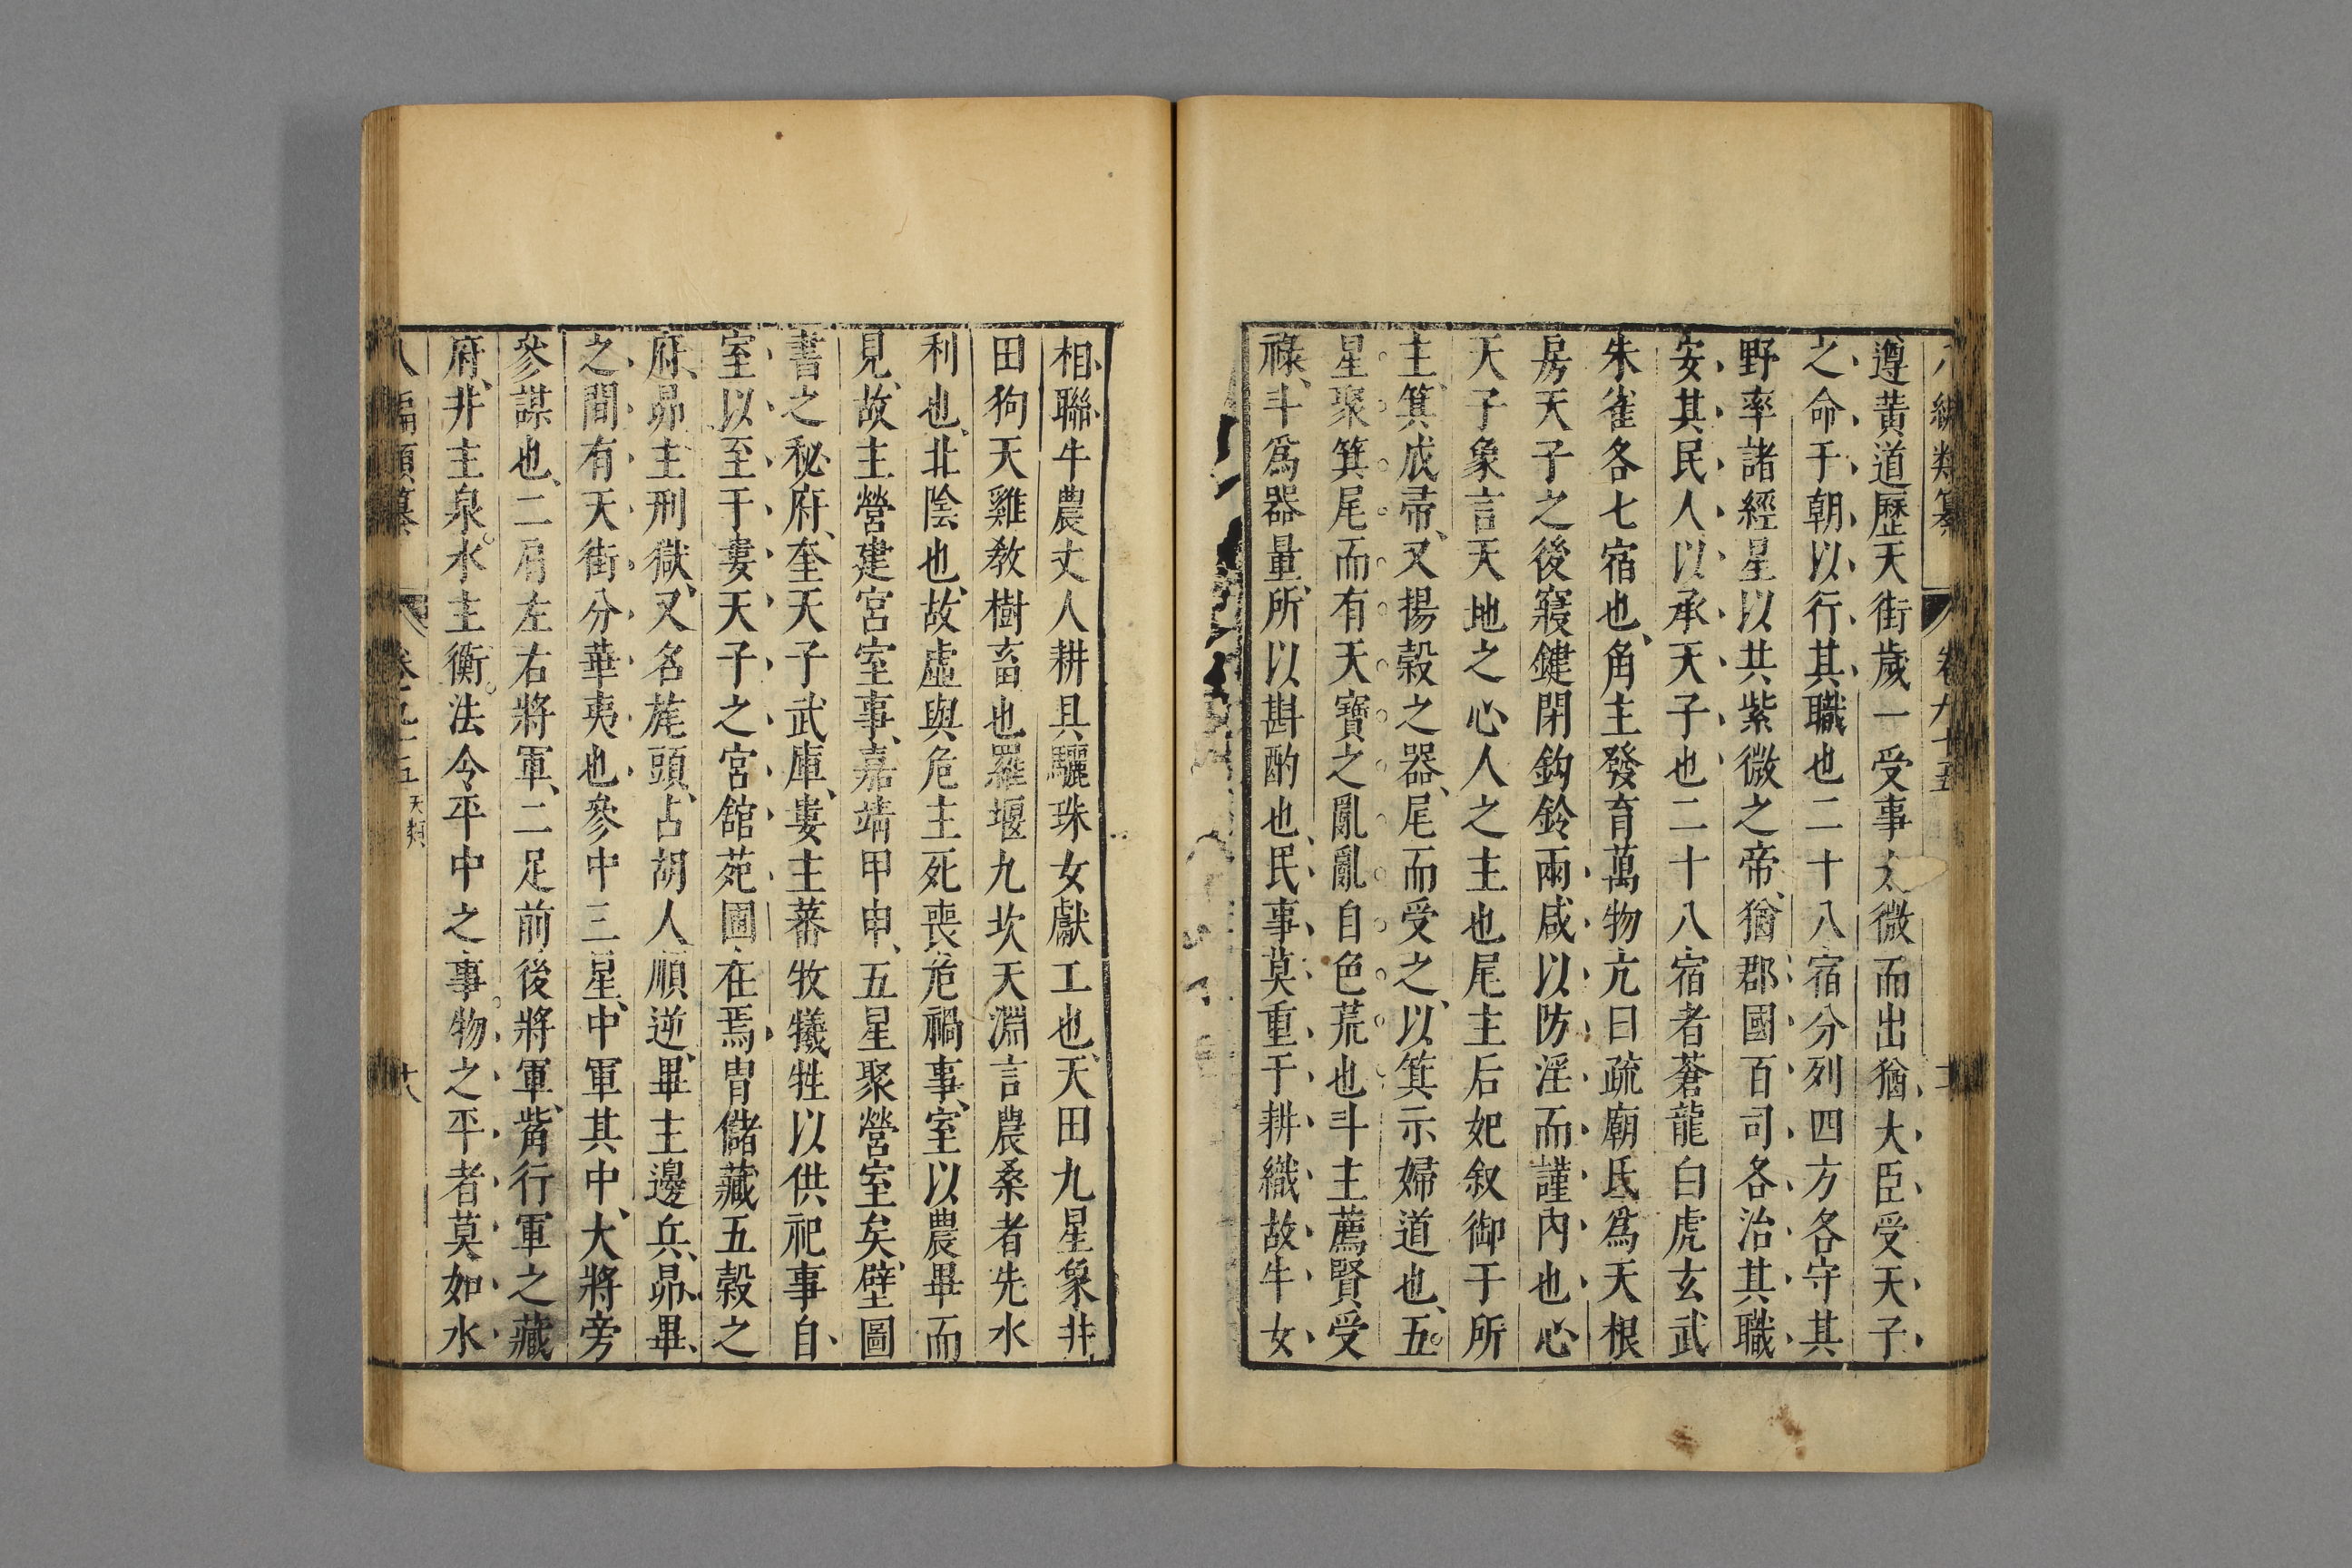 八編類纂 卷九十五
遵黃道歷天街歲一受事太微而出猶大臣受天子
之命于朝以行其職也二十八宿分列四方各守其
野率諸經星以共紫微之帝猶郡國百司各治其職
安其民人以承天子也二十八宿者蒼龍白虎玄武
朱雀各七宿也角主發育萬物亢曰疏廟氐爲天根
房天子之後寢鍵閉鈎鈴兩咸以防淫而謹內也心
天子象言天地之心人之主也尾主后妃叙御于所
主箕成帚又揚榖之器尾而受之以箕示婦道也五
星聚箕尾而有天寶之亂亂自色荒也斗主薦賢受
祿斗爲器量所以斟酌也民事莫重于耕織故牛女
相聯牛農丈人耕具驪珠女獻工也天田九星象井
田狗天雞敎樹畜也羅堰九坎天淵言農桑者先水
利也北陰也故虛與危主死喪危禍事室以農畢而
見故主營建宮室事嘉靖甲申五星聚營室矣壁圖
書之秘府奎天子武庫婁主蕃牧犧牲以供祀事自
室以至于婁天子之宮舘苑圃在焉胃儲藏五榖之
府昴主刑獄又名旄頭占胡人順逆畢主邊兵昴畢
之間有天街分華夷也參中三星中軍其中大將旁
參謀也二肩左右將軍二足前後將軍觜行軍之藏
府井主泉水主衡法令平中之事物之平者莫如水
八編類纂 卷九十五 天類 十八